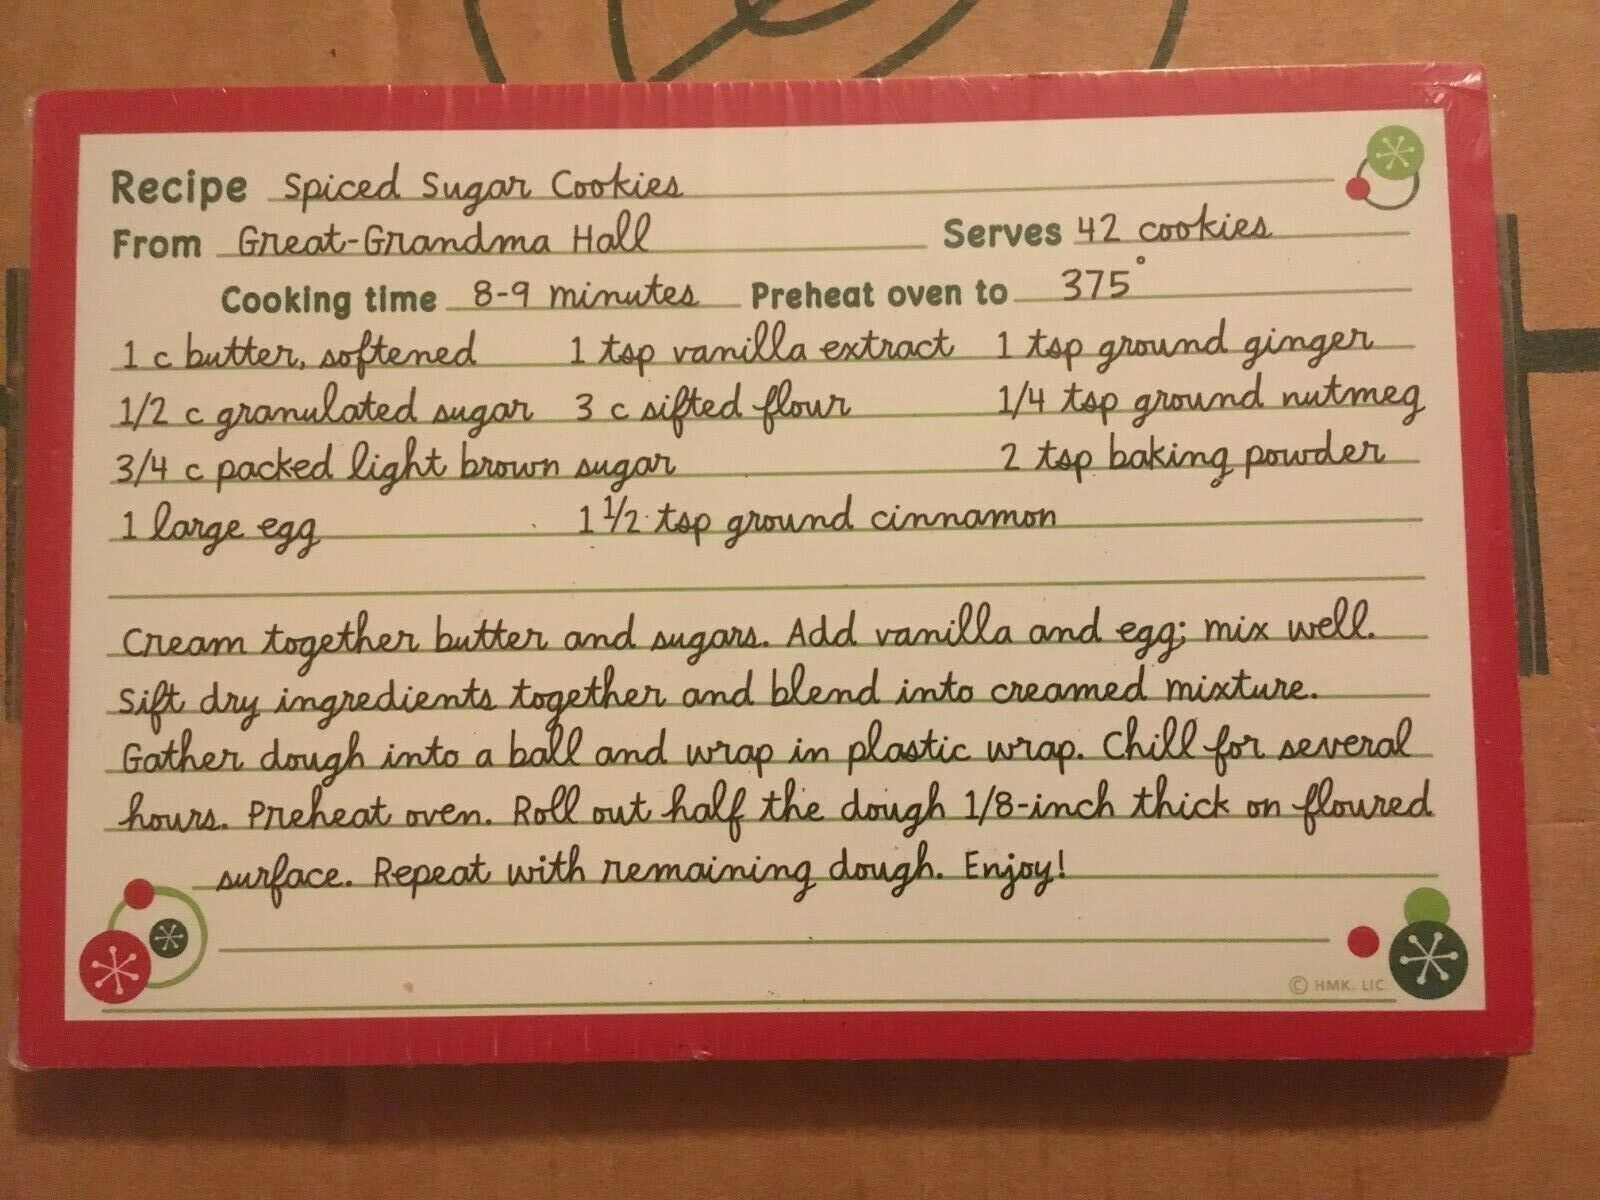 Recipe Spiced Sugar Cookies
From Great-Grandma Hall Serves 42 cookies
Cooking time 8-9 minutes Preheat oven to 375°
1 c butter, softened 1 tsp vanilla extract 1 tsp ground ginger
1/2 c granulated sugar 3 c sifted flour 1/4 tsp ground nutmeg
3/4 c packed light brown sugar 2 tsp baking powder
1 large egg 1 1/2 tsp ground cinnamon
Cream together butter and sugars. Add vanilla and egg; mix well.
Sift dry ingredients together and blend into creamed mixture.
Gather dough into a ball and wrap in plastic wrap. Chill for several
hours. Preheat oven. Roll out half the dough 1/8-inch thick on floured
surface. Repeat with remaining dough. Enjoy!
© HMK. LIC.